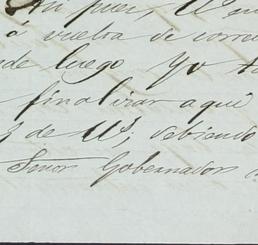 pues,
á vuelta de correo
luego yo
finalizar aquí
de debiendo
Señor Gobernador